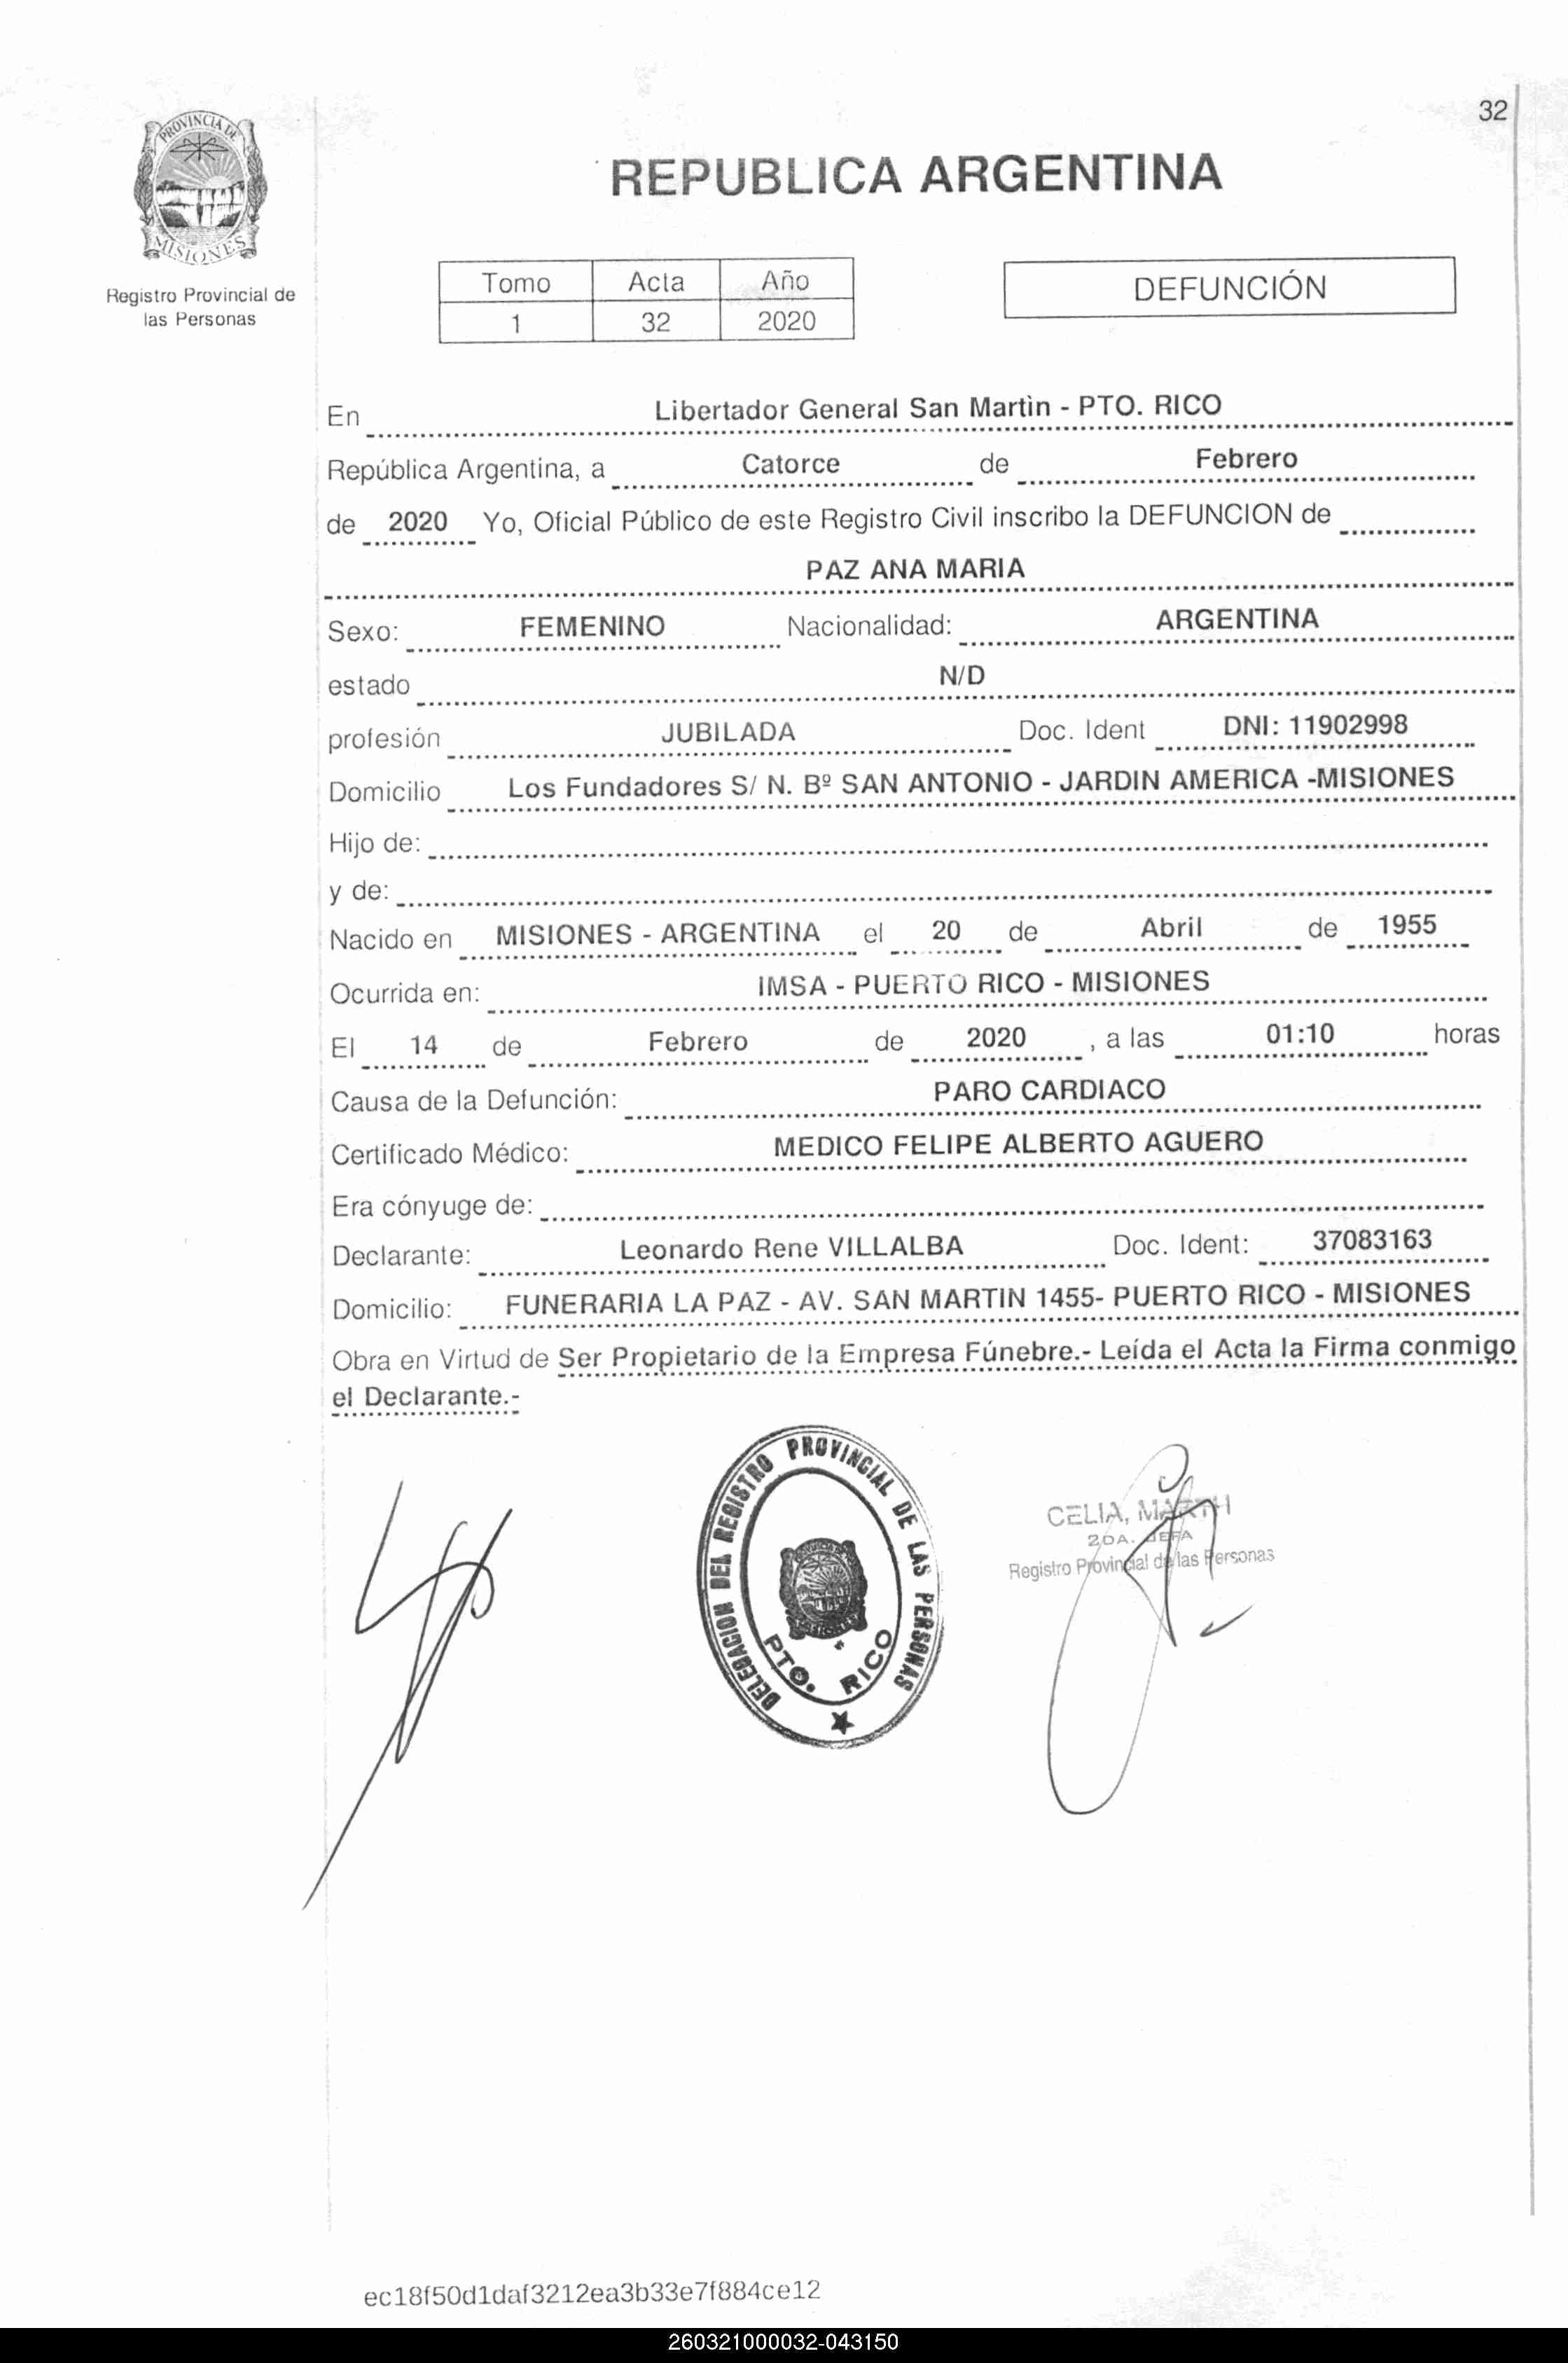 32
PROVINCIA DE
MISIONES
Registro Provincial de
las Personas
REPUBLICA ARGENTINA
Tomo Acta Año
1 32 2020
DEFUNCIÓN
En Libertador General San Martìn - PTO. RICO
República Argentina, a Catorce de Febrero
de 2020 Yo, Oficial Público de este Registro Civil inscribo la DEFUNCION de
PAZ ANA MARIA
Sexo: FEMENINO Nacionalidad: ARGENTINA
estado N/D
profesión JUBILADA Doc. Ident DNI: 11902998
Domicilio Los Fundadores S/ N. Bº SAN ANTONIO - JARDIN AMERICA -MISIONES
Hijo de:
y de:
Nacido en MISIONES - ARGENTINA el 20 de Abril de 1955
Ocurrida en: IMSA - PUERTO RICO - MISIONES
El 14 de Febrero de 2020 , a las 01:10 horas
Causa de la Defunción: PARO CARDIACO
Certificado Médico: MEDICO FELIPE ALBERTO AGUERO
Era cónyuge de:
Declarante: Leonardo Rene VILLALBA Doc. Ident: 37083163
Domicilio: FUNERARIA LA PAZ - AV. SAN MARTIN 1455- PUERTO RICO - MISIONES
Obra en Virtud de Ser Propietario de la Empresa Fúnebre.- Leída el Acta la Firma conmigo
el Declarante.-
DELEGACION DEL REGISTRO PROVINCIAL DE LAS PERSONAS
PTO. RICO
CELIA,
2DA. JEFA
Registro Provincial de las Personas
ec18f50d1daf3212ea3b33e7f884ce12
260321000032-043150